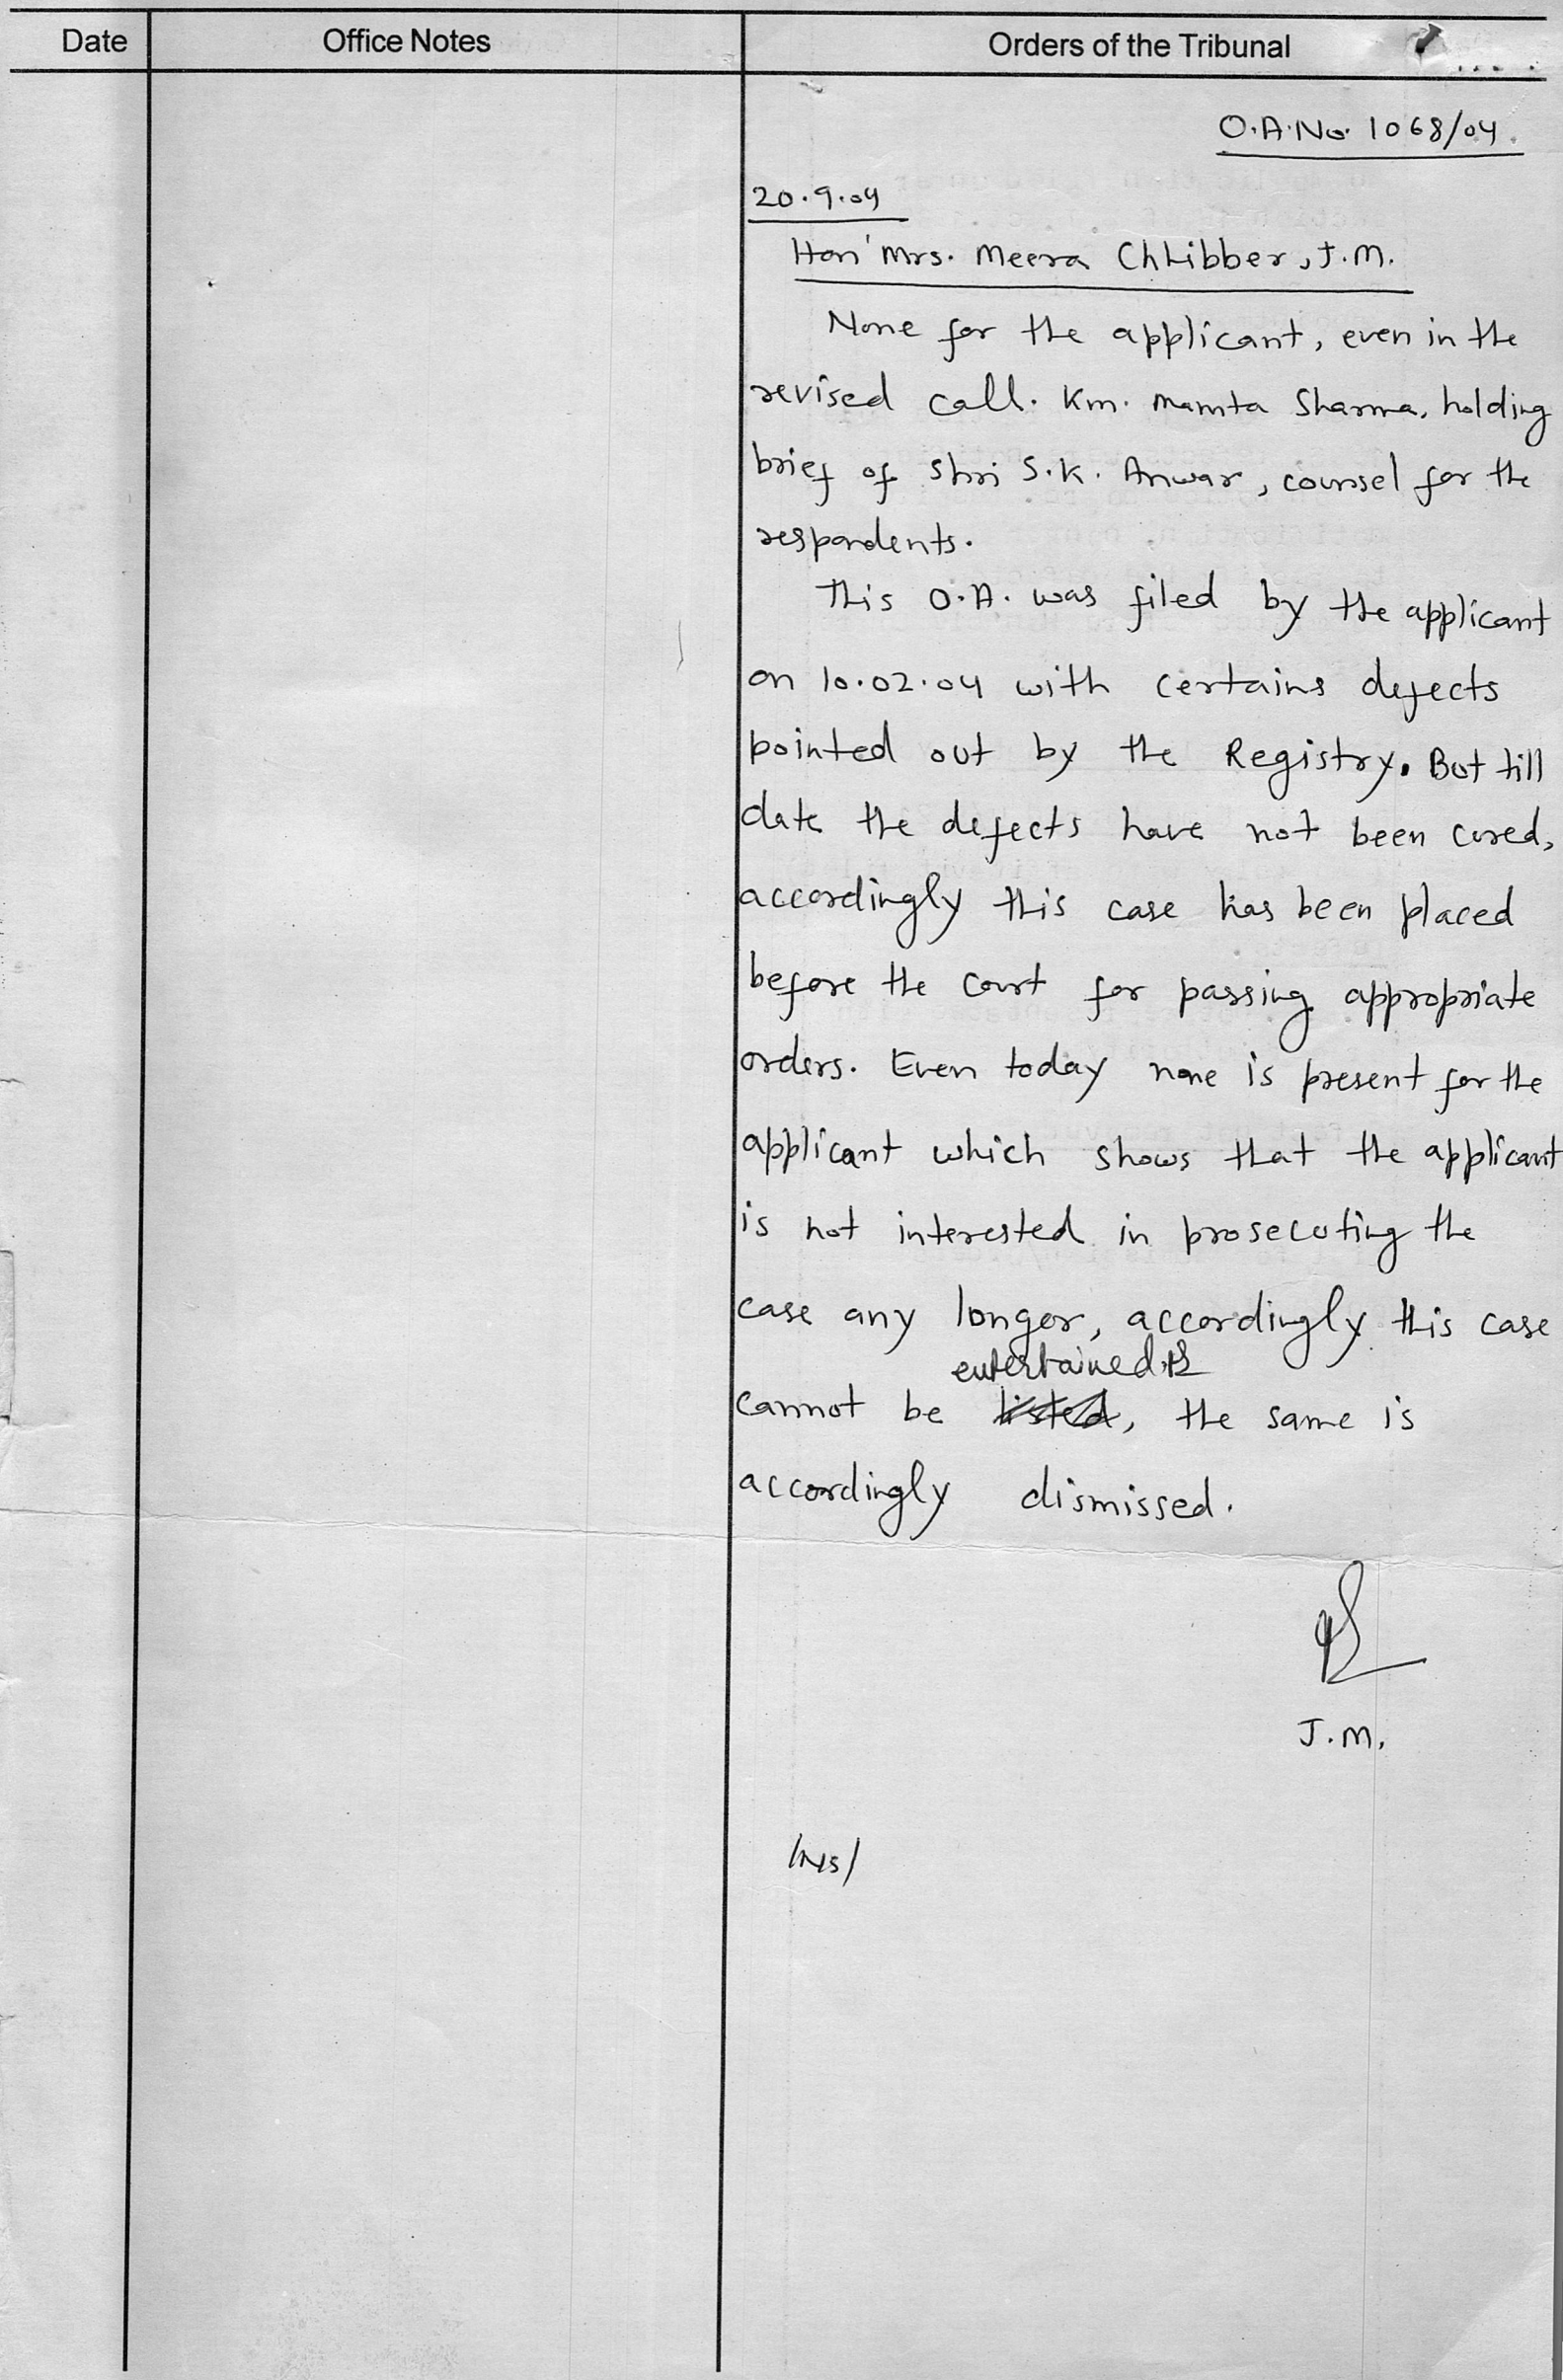 Date Office Notes Orders of the Tribunal
O.A.No. 1068/04.
20.9.04
Hon' Mrs. Meera Chhibber, J.M.
None for the applicant, even in the
revised call. Km. Mamta Sharma, holding
brief of Shri S.K. Anwar, counsel for the
respondents.
This O.A. was filed by the applicant
on 10.02.04 with certains defects
pointed out by the Registry. But till
date the defects have not been cured,
accordingly this case has been placed
before the court for passing appropriate
orders. Even today none is present for the
applicant which shows that the applicant
is not interested in prosecuting the
case any longer, accordingly this case
entertained
cannot be listed, the same is
accordingly dismissed.
J.M.